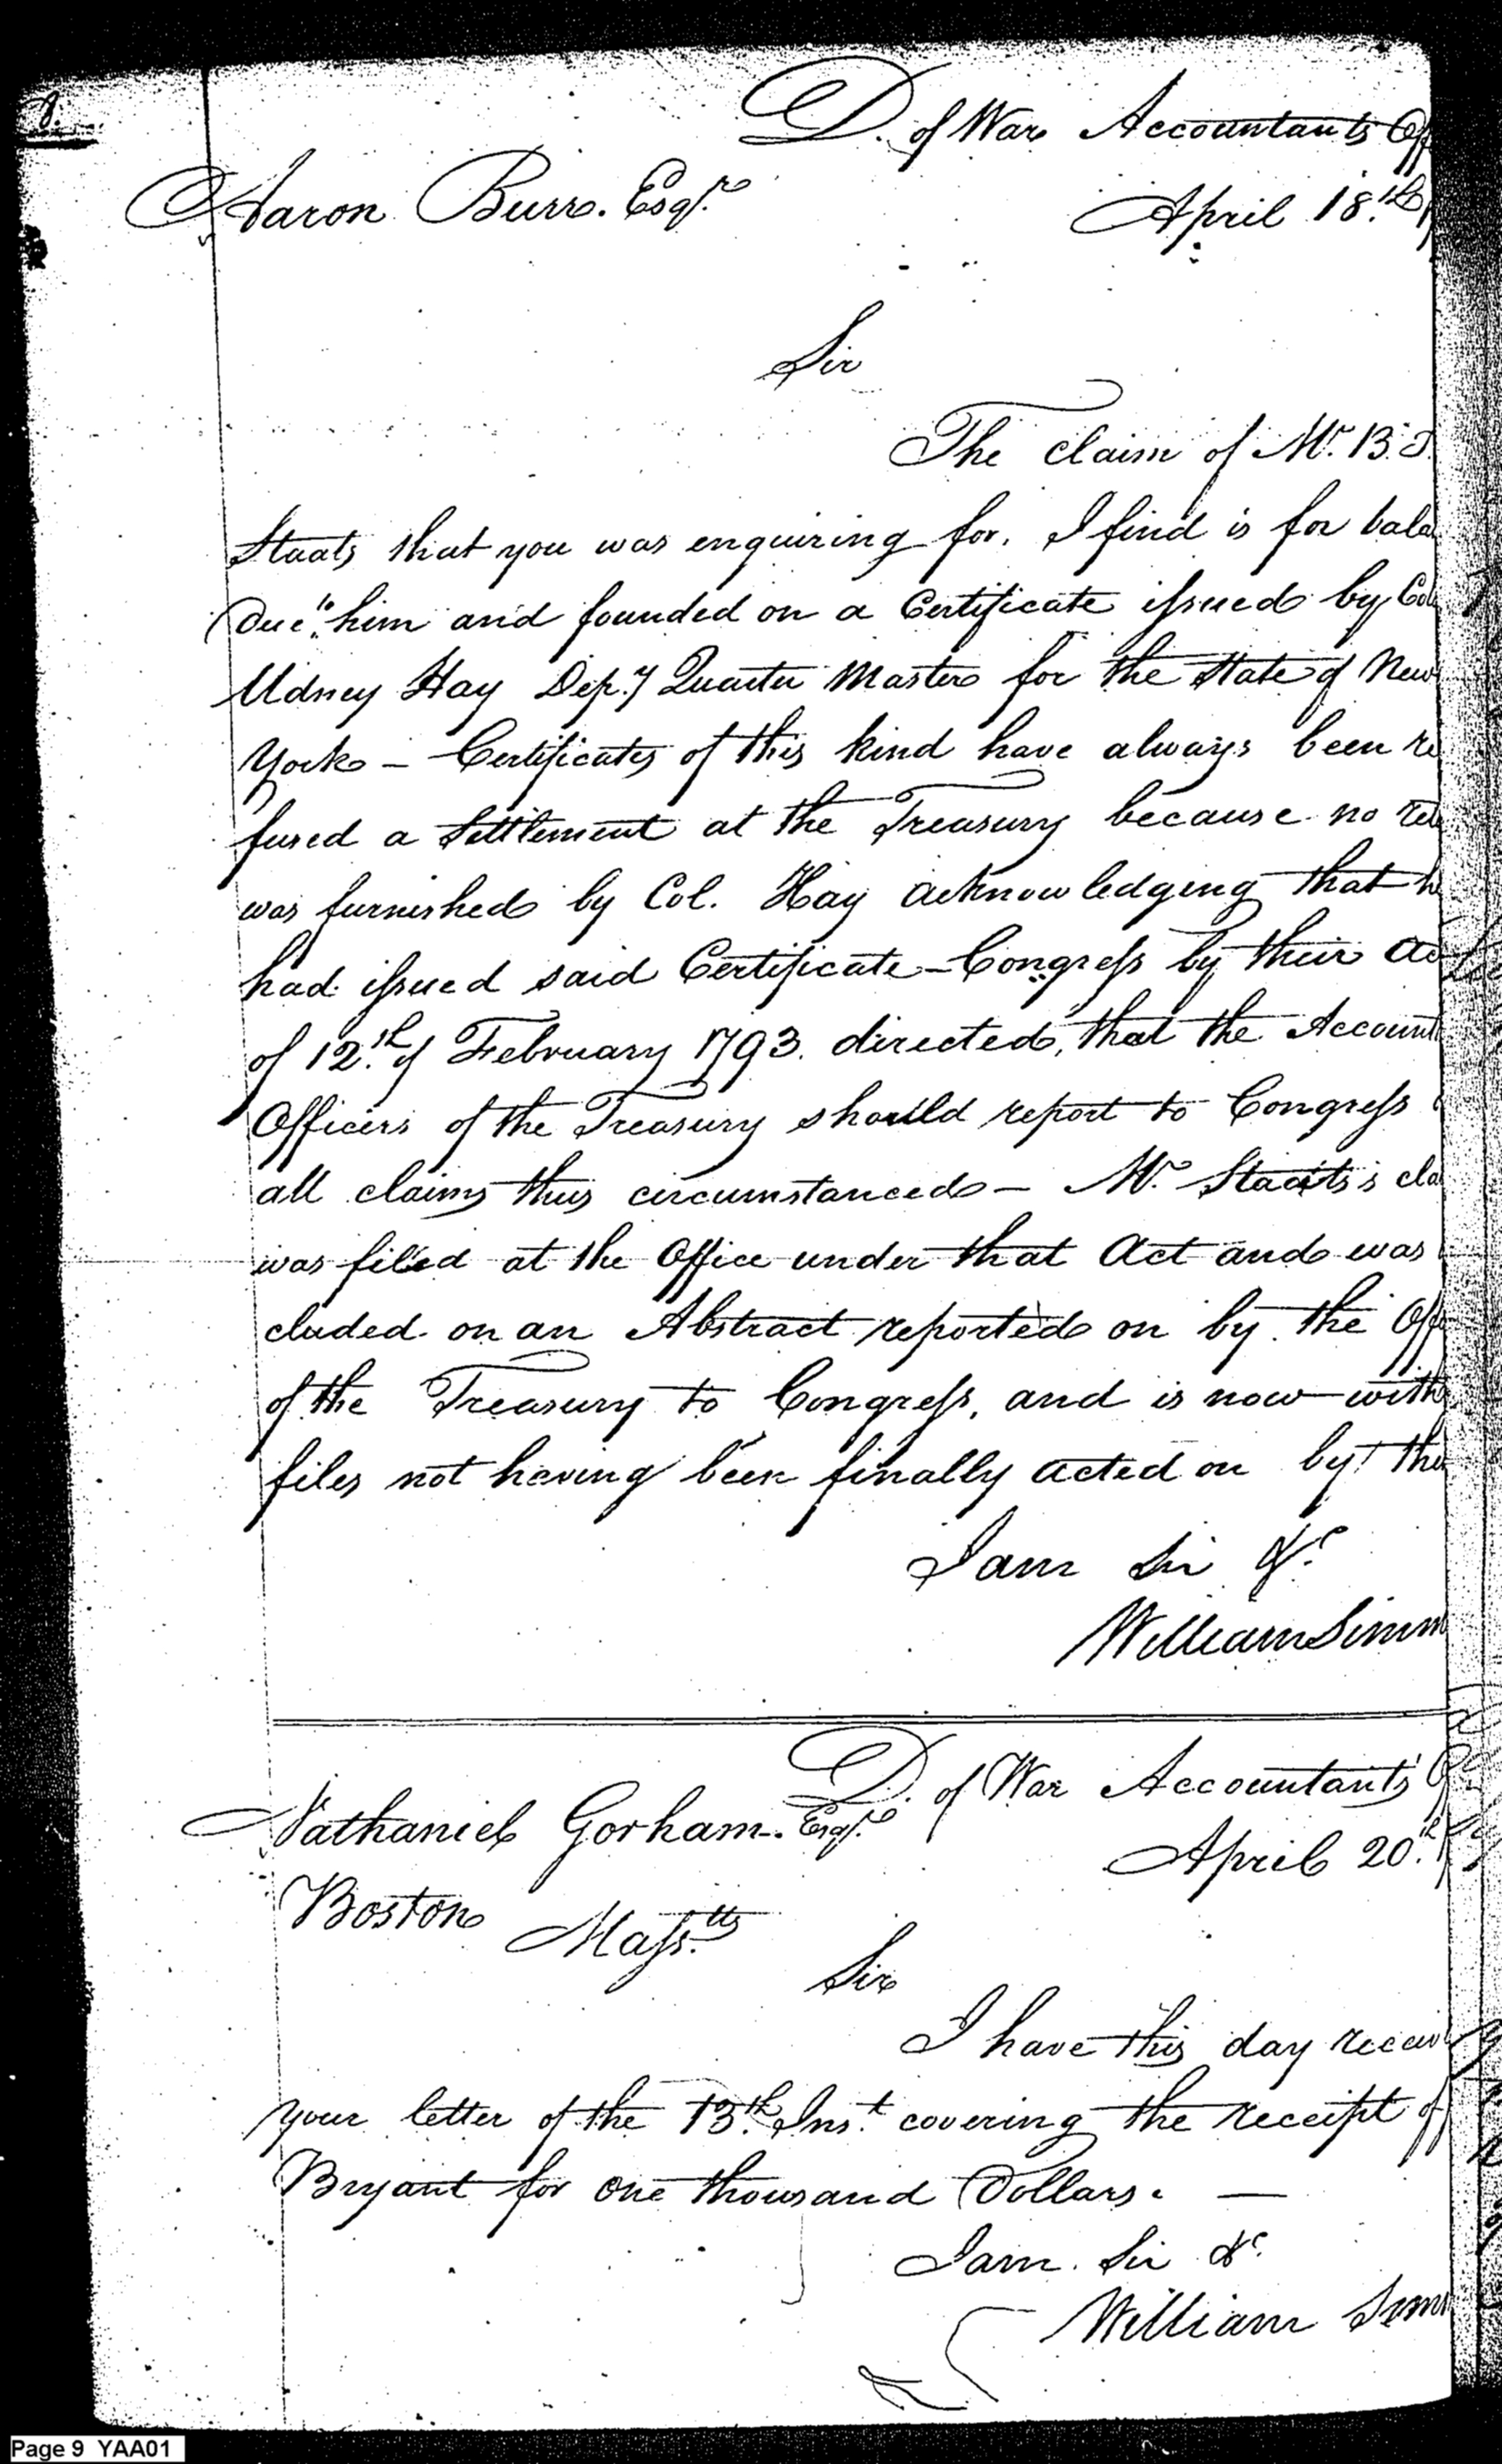 8.
D. of War Accountants Off
Aaron Burr. Esqr.
April 18.th
Sir
The claim of Mr. B. J.
Staats that you was enquiring for, I find is for bala
Due to him and founded on a Certificate issued by Col
Udney Hay Dep.y Quarter Master for the State of New
York – Certificates of this kind have always been re
fused a Settlement at the Treasury because no ret
was furnished by Col. Hay acknowledging that h
had issued said Certificate – Congress by their Ac
of 12.th of February 1793. directed, that the Account
Officers of the Treasury should report to Congress
all claims thus circumstanced – Mr. Staats's cla
was filed at the Office under that Act and was
cluded on an Abstract reported on by the Off
of the Treasury to Congress, and is now with
files not having been finally acted on by the
I am Sir &c
William Simm
D. of War Accountants O
Nathaniel Gorham. Esqr.
April 20.th
Boston
Mass.tts
Sir
I have this day receiv
your letter of the 13.th Ins.t covering the receipt of
Bryant for one thousand Dollars. —
I am. Sir &c.
William Simm
Page 9 YAA01